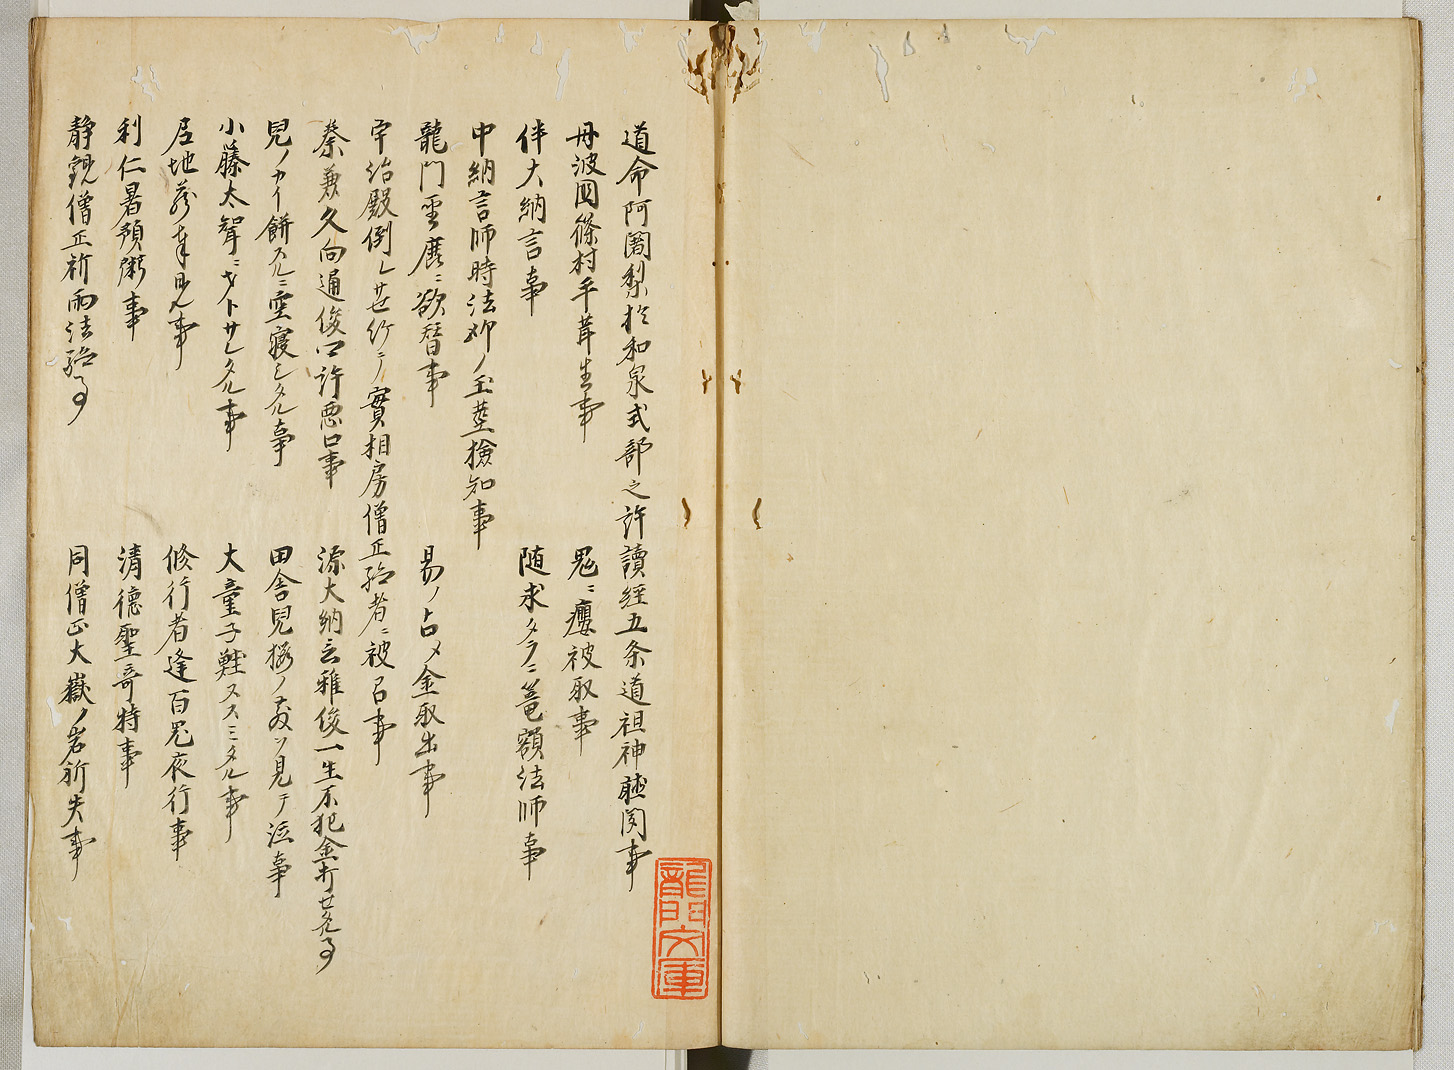 道命阿闍梨於和泉式部之許讀經五条道祖神聴聞事
丹波國篠村平茸生事
鬼ニ癭被取事
伴大納言事
随求タラニ篭額法師事
中納言師時法師ノ玉莖撿知事
龍門聖鹿ニ欲替事
易ノ占〆金取出事
宇治殿倒レサセ給テ實相房僧正験者ニ被召事
秦兼久向通俊卿許悪口事
源大納言雅俊一生不犯金打セタル事
児ノカイ餅スルニ空寝シタル事
田舎児桜ノ散ヲ見テ泣事
小藤太聟ニヲトサレタル事
大童子鮭ヌスミタル事
尼地蔵奉見事
修行者逢百鬼夜行事
利仁暑預粥事
清徳聖奇特事
静観僧正祈雨法験事
同僧正大嶽ノ岩祈失事
龍門文庫